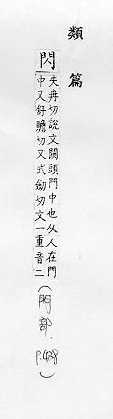 類篇
閃
失冉切說文闚頭門中也从人在門
中又舒贍切又式劒切文一重音二
(門部.